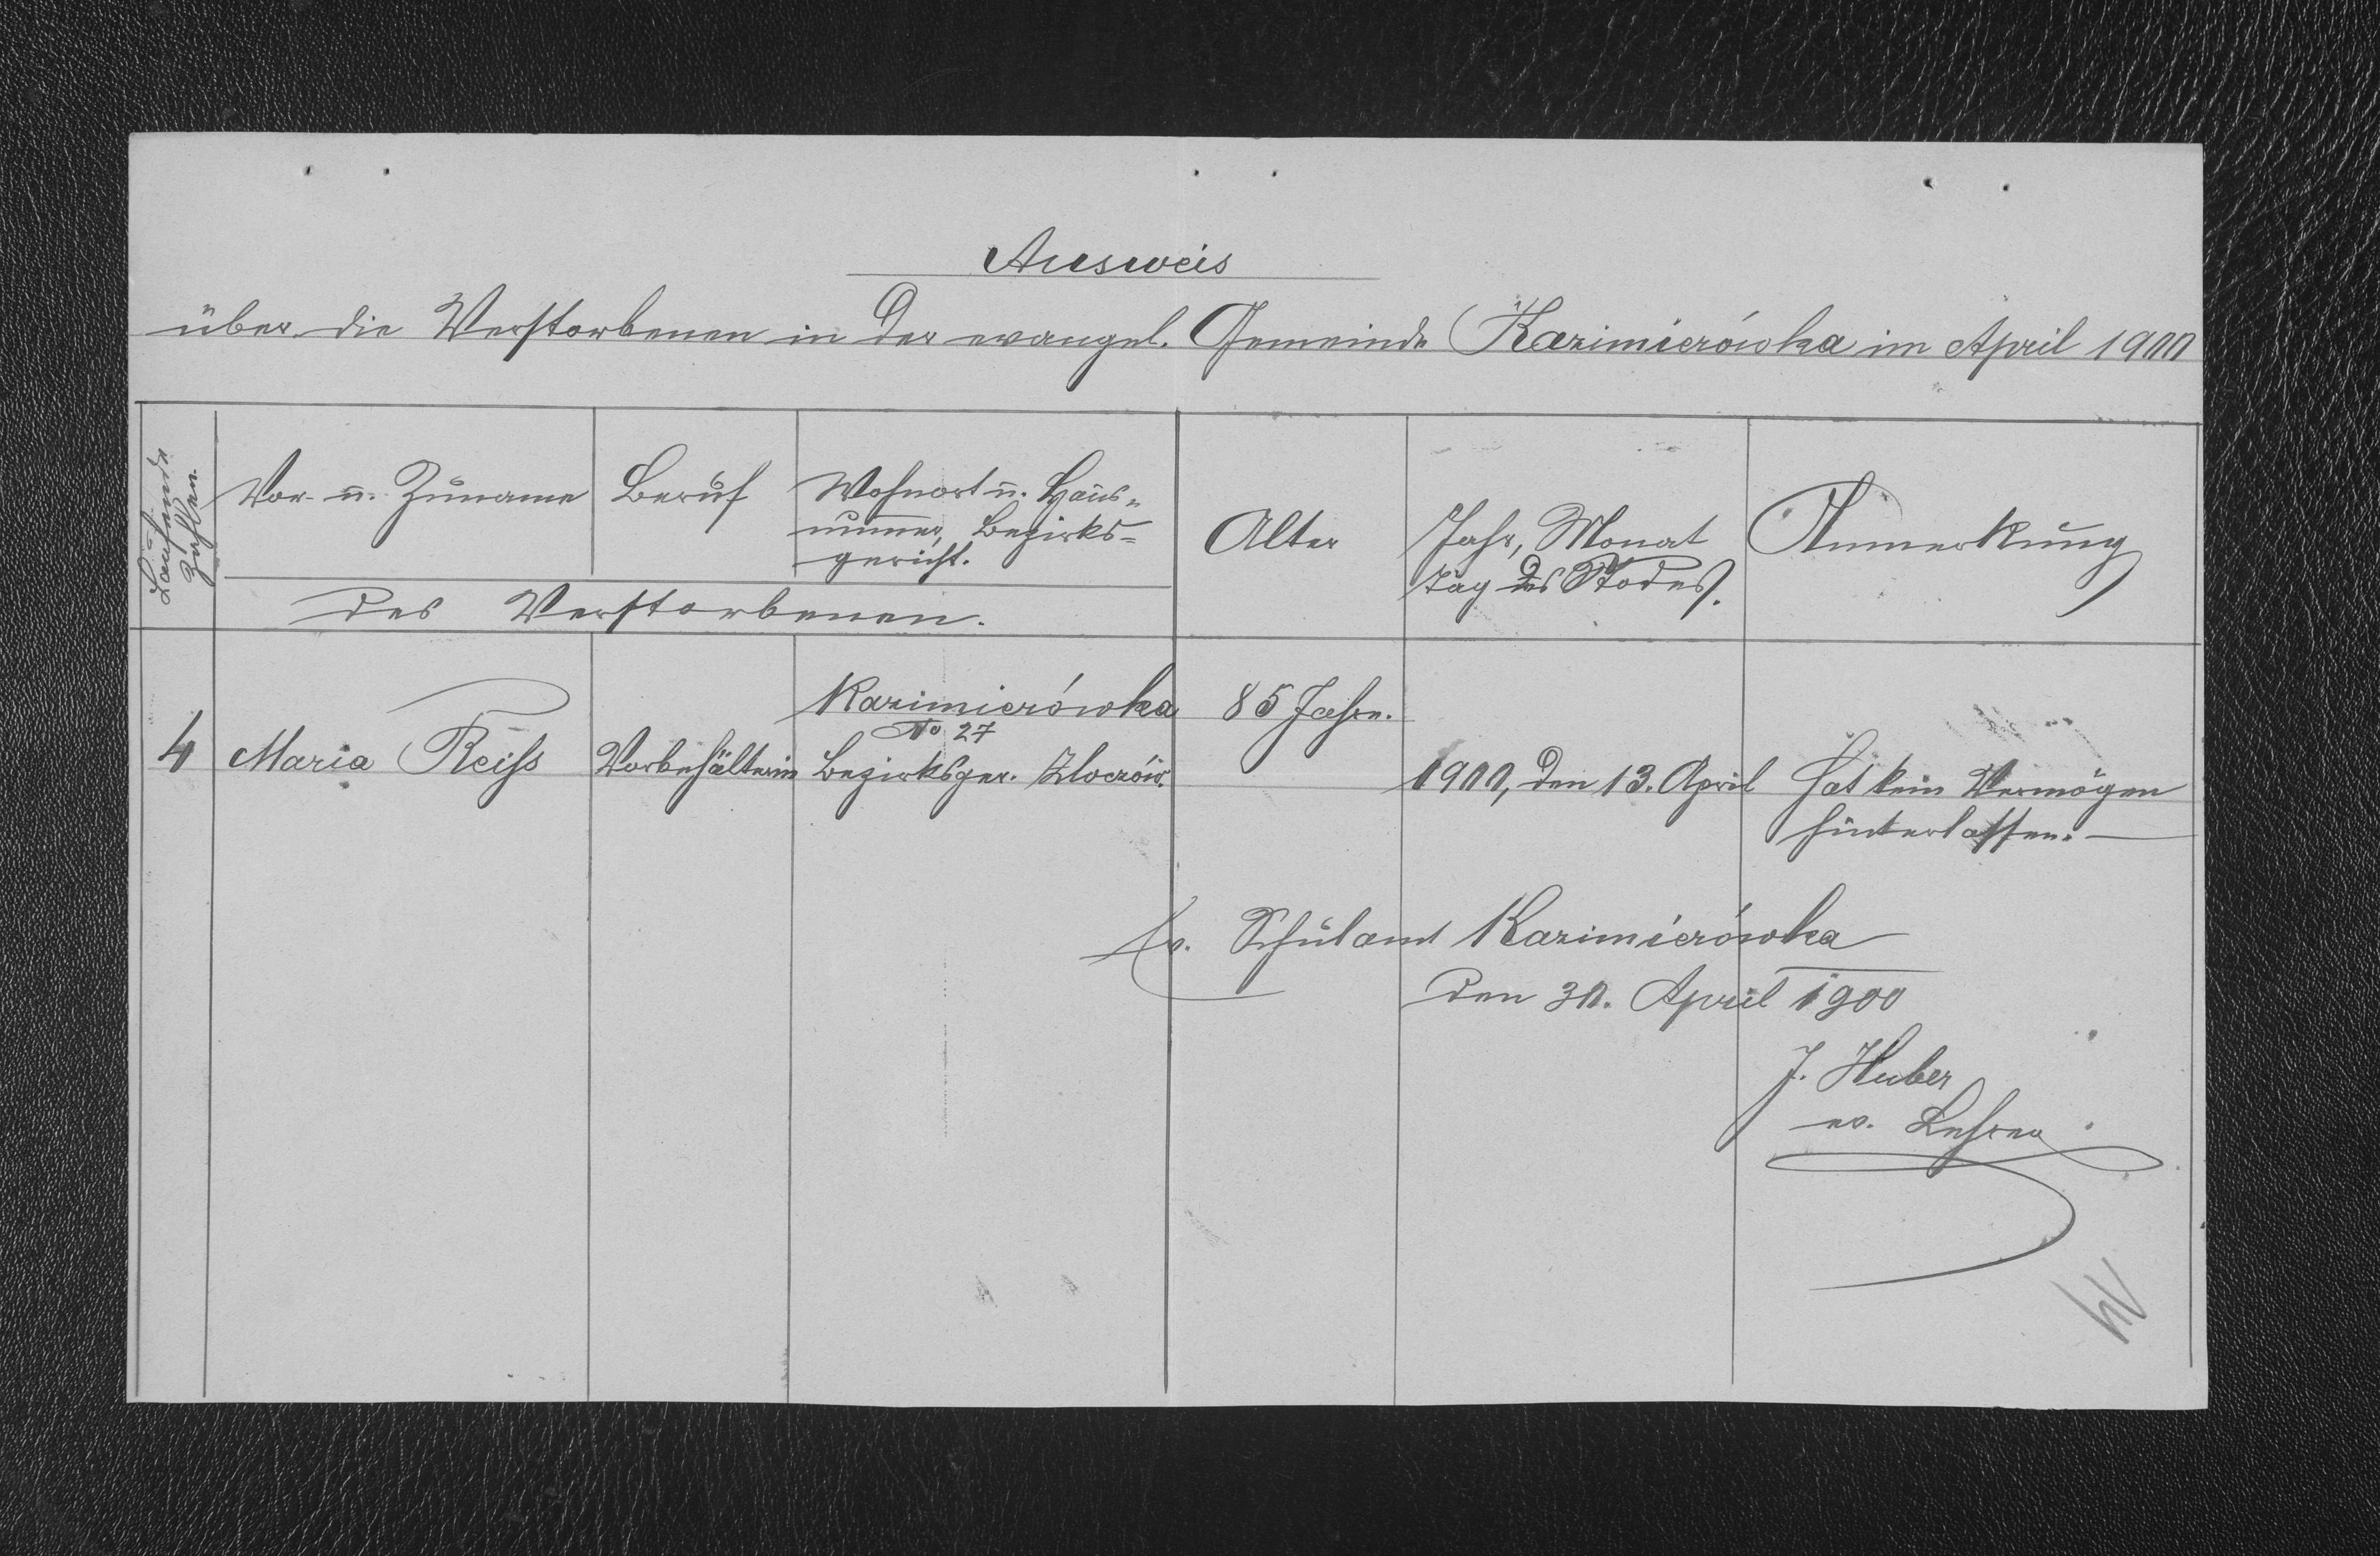 Ausweis
über die Verstorbenen in der evangel. Gemeinde Kazimierówka im April 1900
Laufende
Zahlen.
Vor- u. Zuname
Beruf
Wohnort u. Haus-
nummer, Bezirks-
gericht.
des Verstorbenen.
Alter
Jahr, Monat
Tag des Todes.
Anmerkung
4
Maria Reiss
Vorbehälterin
Kazimierówka
No 27
Bezirksger. Zloczów.
85 Jahre.
1900, den 13. April
Hat kein Vermögen
hinterlassen.
Ev. Schulamt Kazimierówka
den 30. April 1900
J. Huber
ev. Lehrer